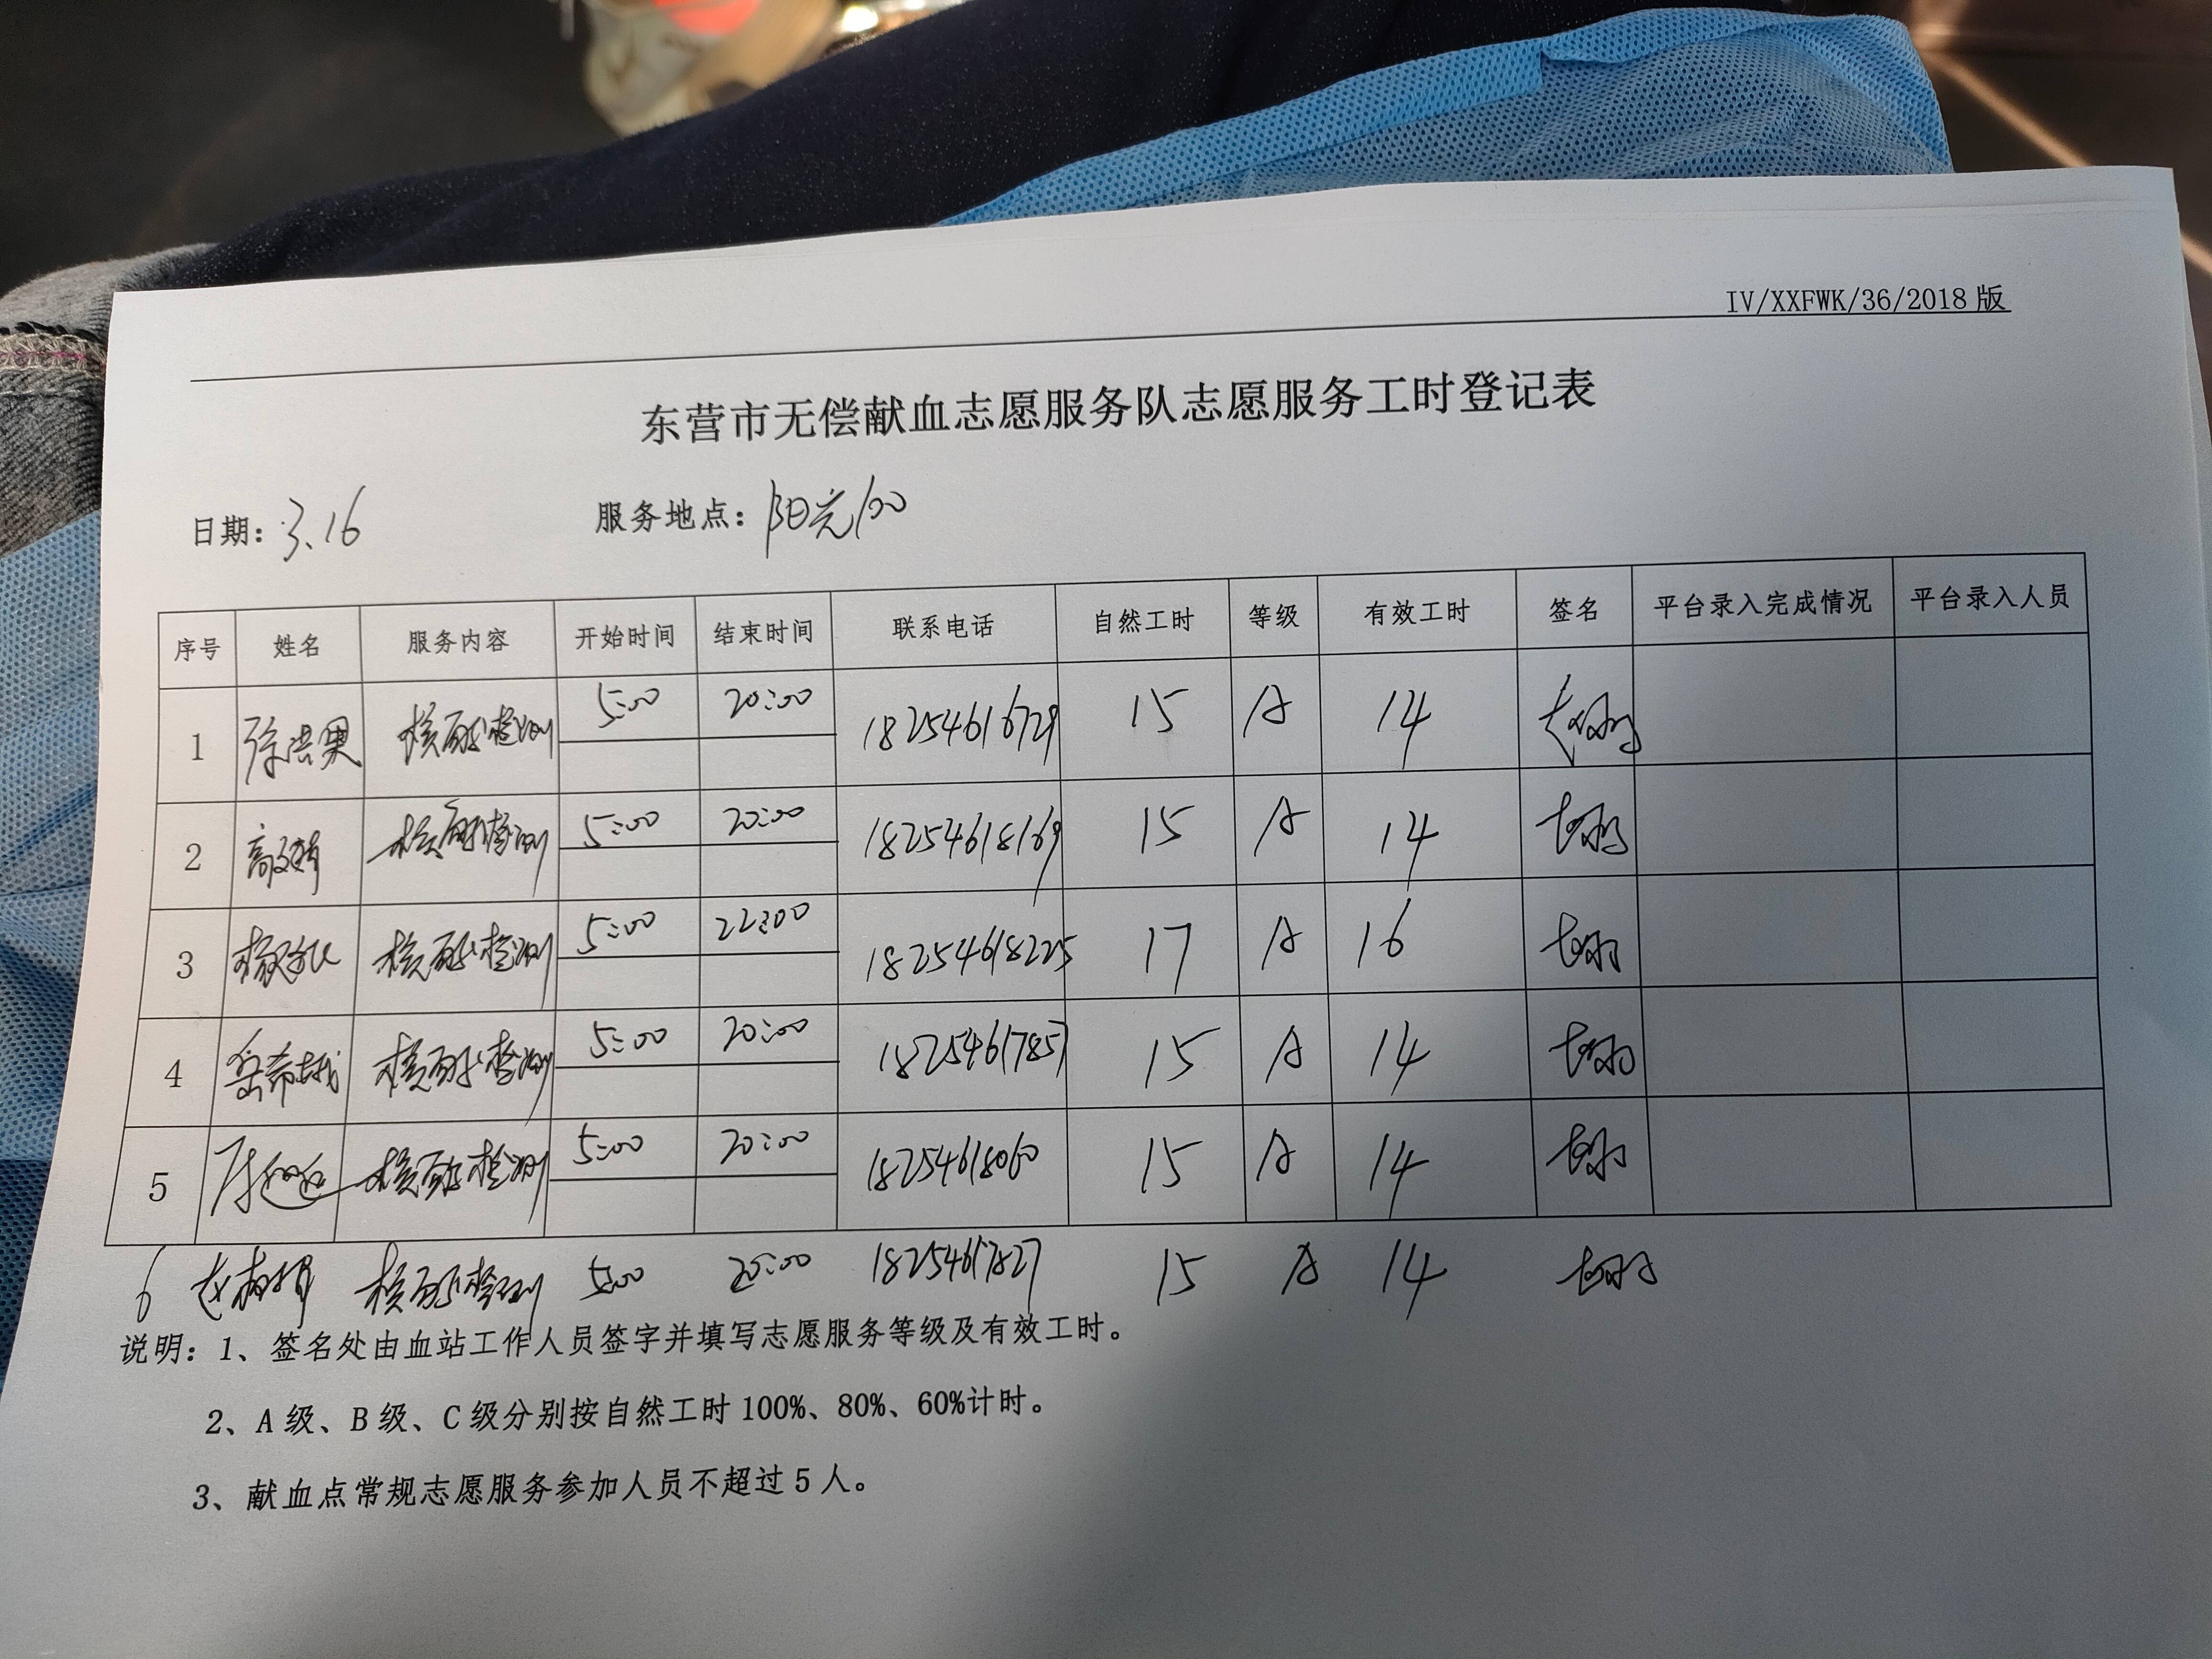 IV/XXFWK/36/2018 版
东营市无偿献血志愿服务队志愿服务工时登记表
日期: 3.16 服务地点: 阳光100
序号 姓名 服务内容 开始时间 结束时间 联系电话 自然工时 等级 有效工时 签名 平台录入完成情况 平台录入人员
1 徐洪果 核酸检测 5:00 20:00 18254616729 15 A 14
2 核酸检测 5:00 20:00 18254618169 15 A 14
3 核酸检测 5:00 22:00 18254618225 17 A 16
4 核酸检测 5:00 20:00 18254617857 15 A 14
5 核酸检测 5:00 20:00 18254618060 15 A 14
6 核酸检测 5:00 20:00 18254617827 15 A 14
说明: 1、签名处由血站工作人员签字并填写志愿服务等级及有效工时。
2、A 级、B 级、C 级分别按自然工时 100%、80%、60%计时。
3、献血点常规志愿服务参加人员不超过 5 人。